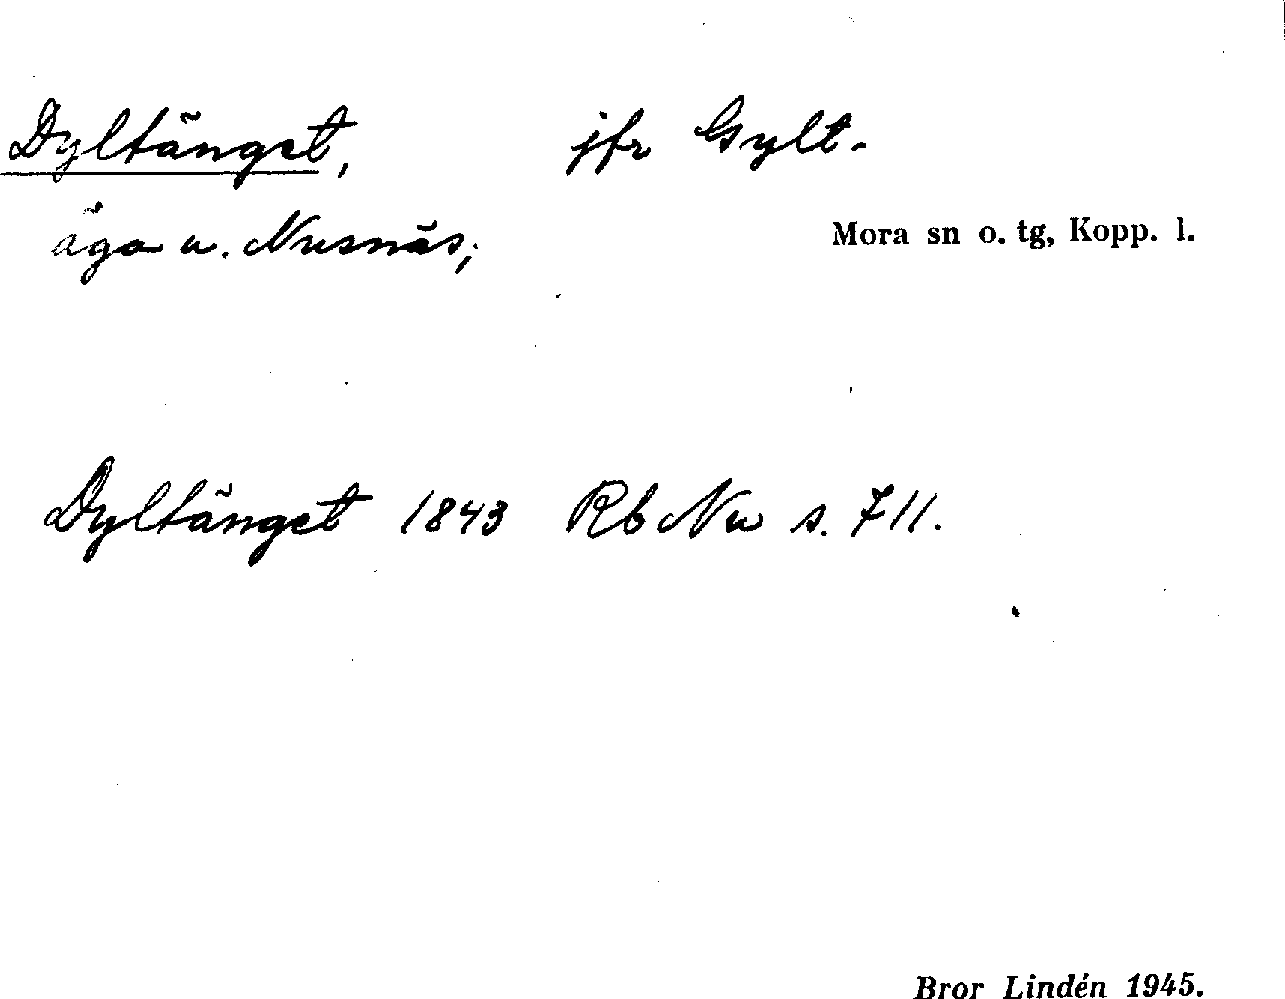 Dyltänget, jfr Gylt-
äga u. Nusnäs;
Mora sn o. tg, Kopp. l.
Dyltänget 1843 Rb Nu s. 711.
Bror Lindén 1945.